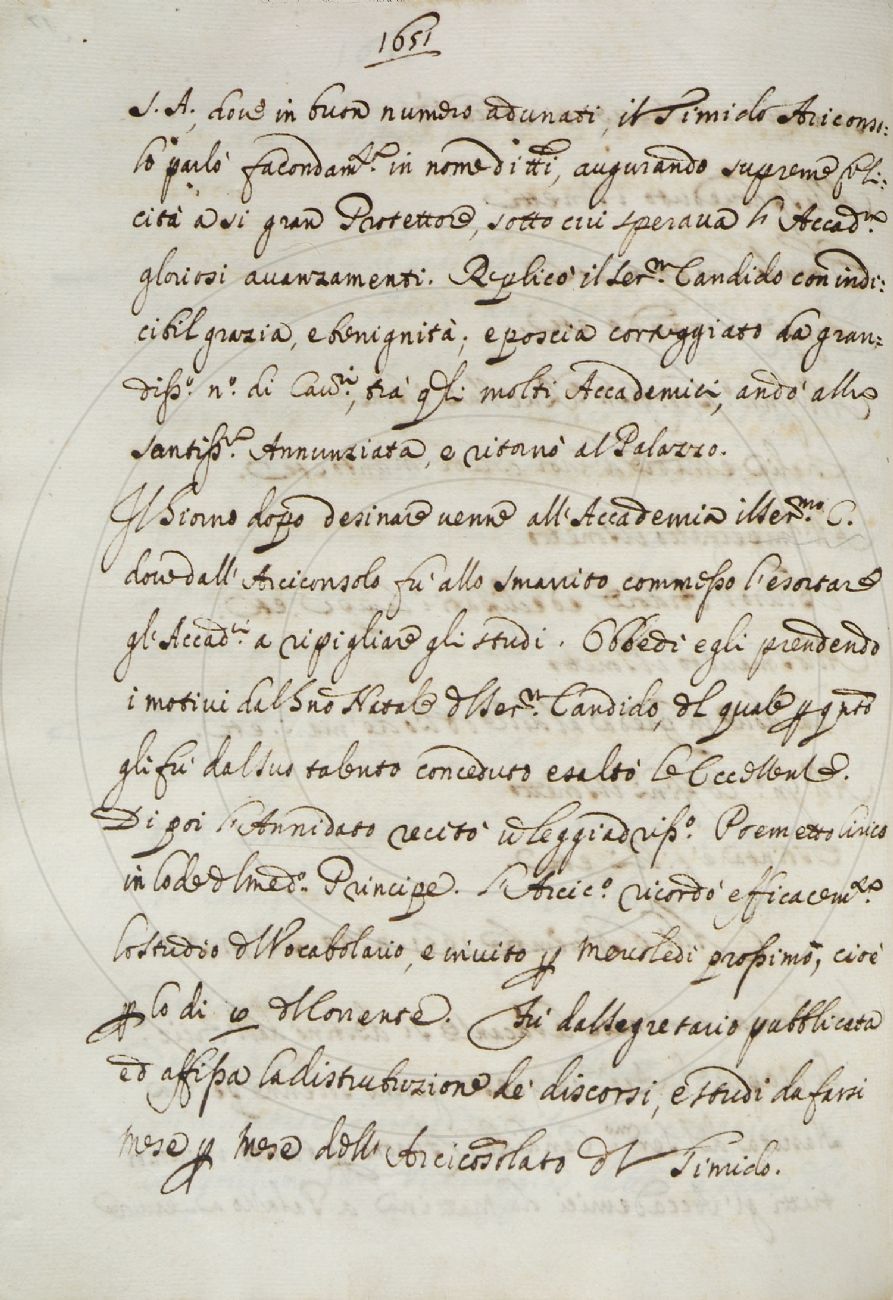 1651
S. A., dove in buon numero adunati, il Timido Ariconso:
lo parlò facondam.te in nome di tti, augurando supreme feli:
cità a si gran Protettore, sotto cui sperava l'Accad.a
gloriosi avanzamenti. Replicò il Ser.mo Candido con indi:
cibil grazia, e benignità; e poscia corteggiato da gran:
diss.o n.o di Cav.ri, trà qli molti Accademici, andò alla
santiss.a Annunziata, e ritornò al Palazzo.
Il Giorno dopo desinare venne all'Accademia il Ser.mo C.
dove dall'Arciconsolo fù allo smarrito commesso l'esortare
gl'Accad.ci a ripigliare gli studi. Obbedì egli prendendo
i motivi dal Natale dl Ser.mo Candido, dl quale p qnto
gli fù dal suo talento conceduto esaltò le Eccellenze.
Di poi l'Annidato recitò leggiadriss.o Poemetto lirico
in lode dl med.o Principe. L'Arcic.o ricordò efficacem.te
lo studio dl Vocabolario, e invitò p Mercoledì prossimo, cioè
p lo di dl Corrente. Fù dal Segretario pubblicata
ed affissa la distribuzione de' discorsi, e studi da farsi
Mese p Mese dell'Arcicosolato dl Timido.